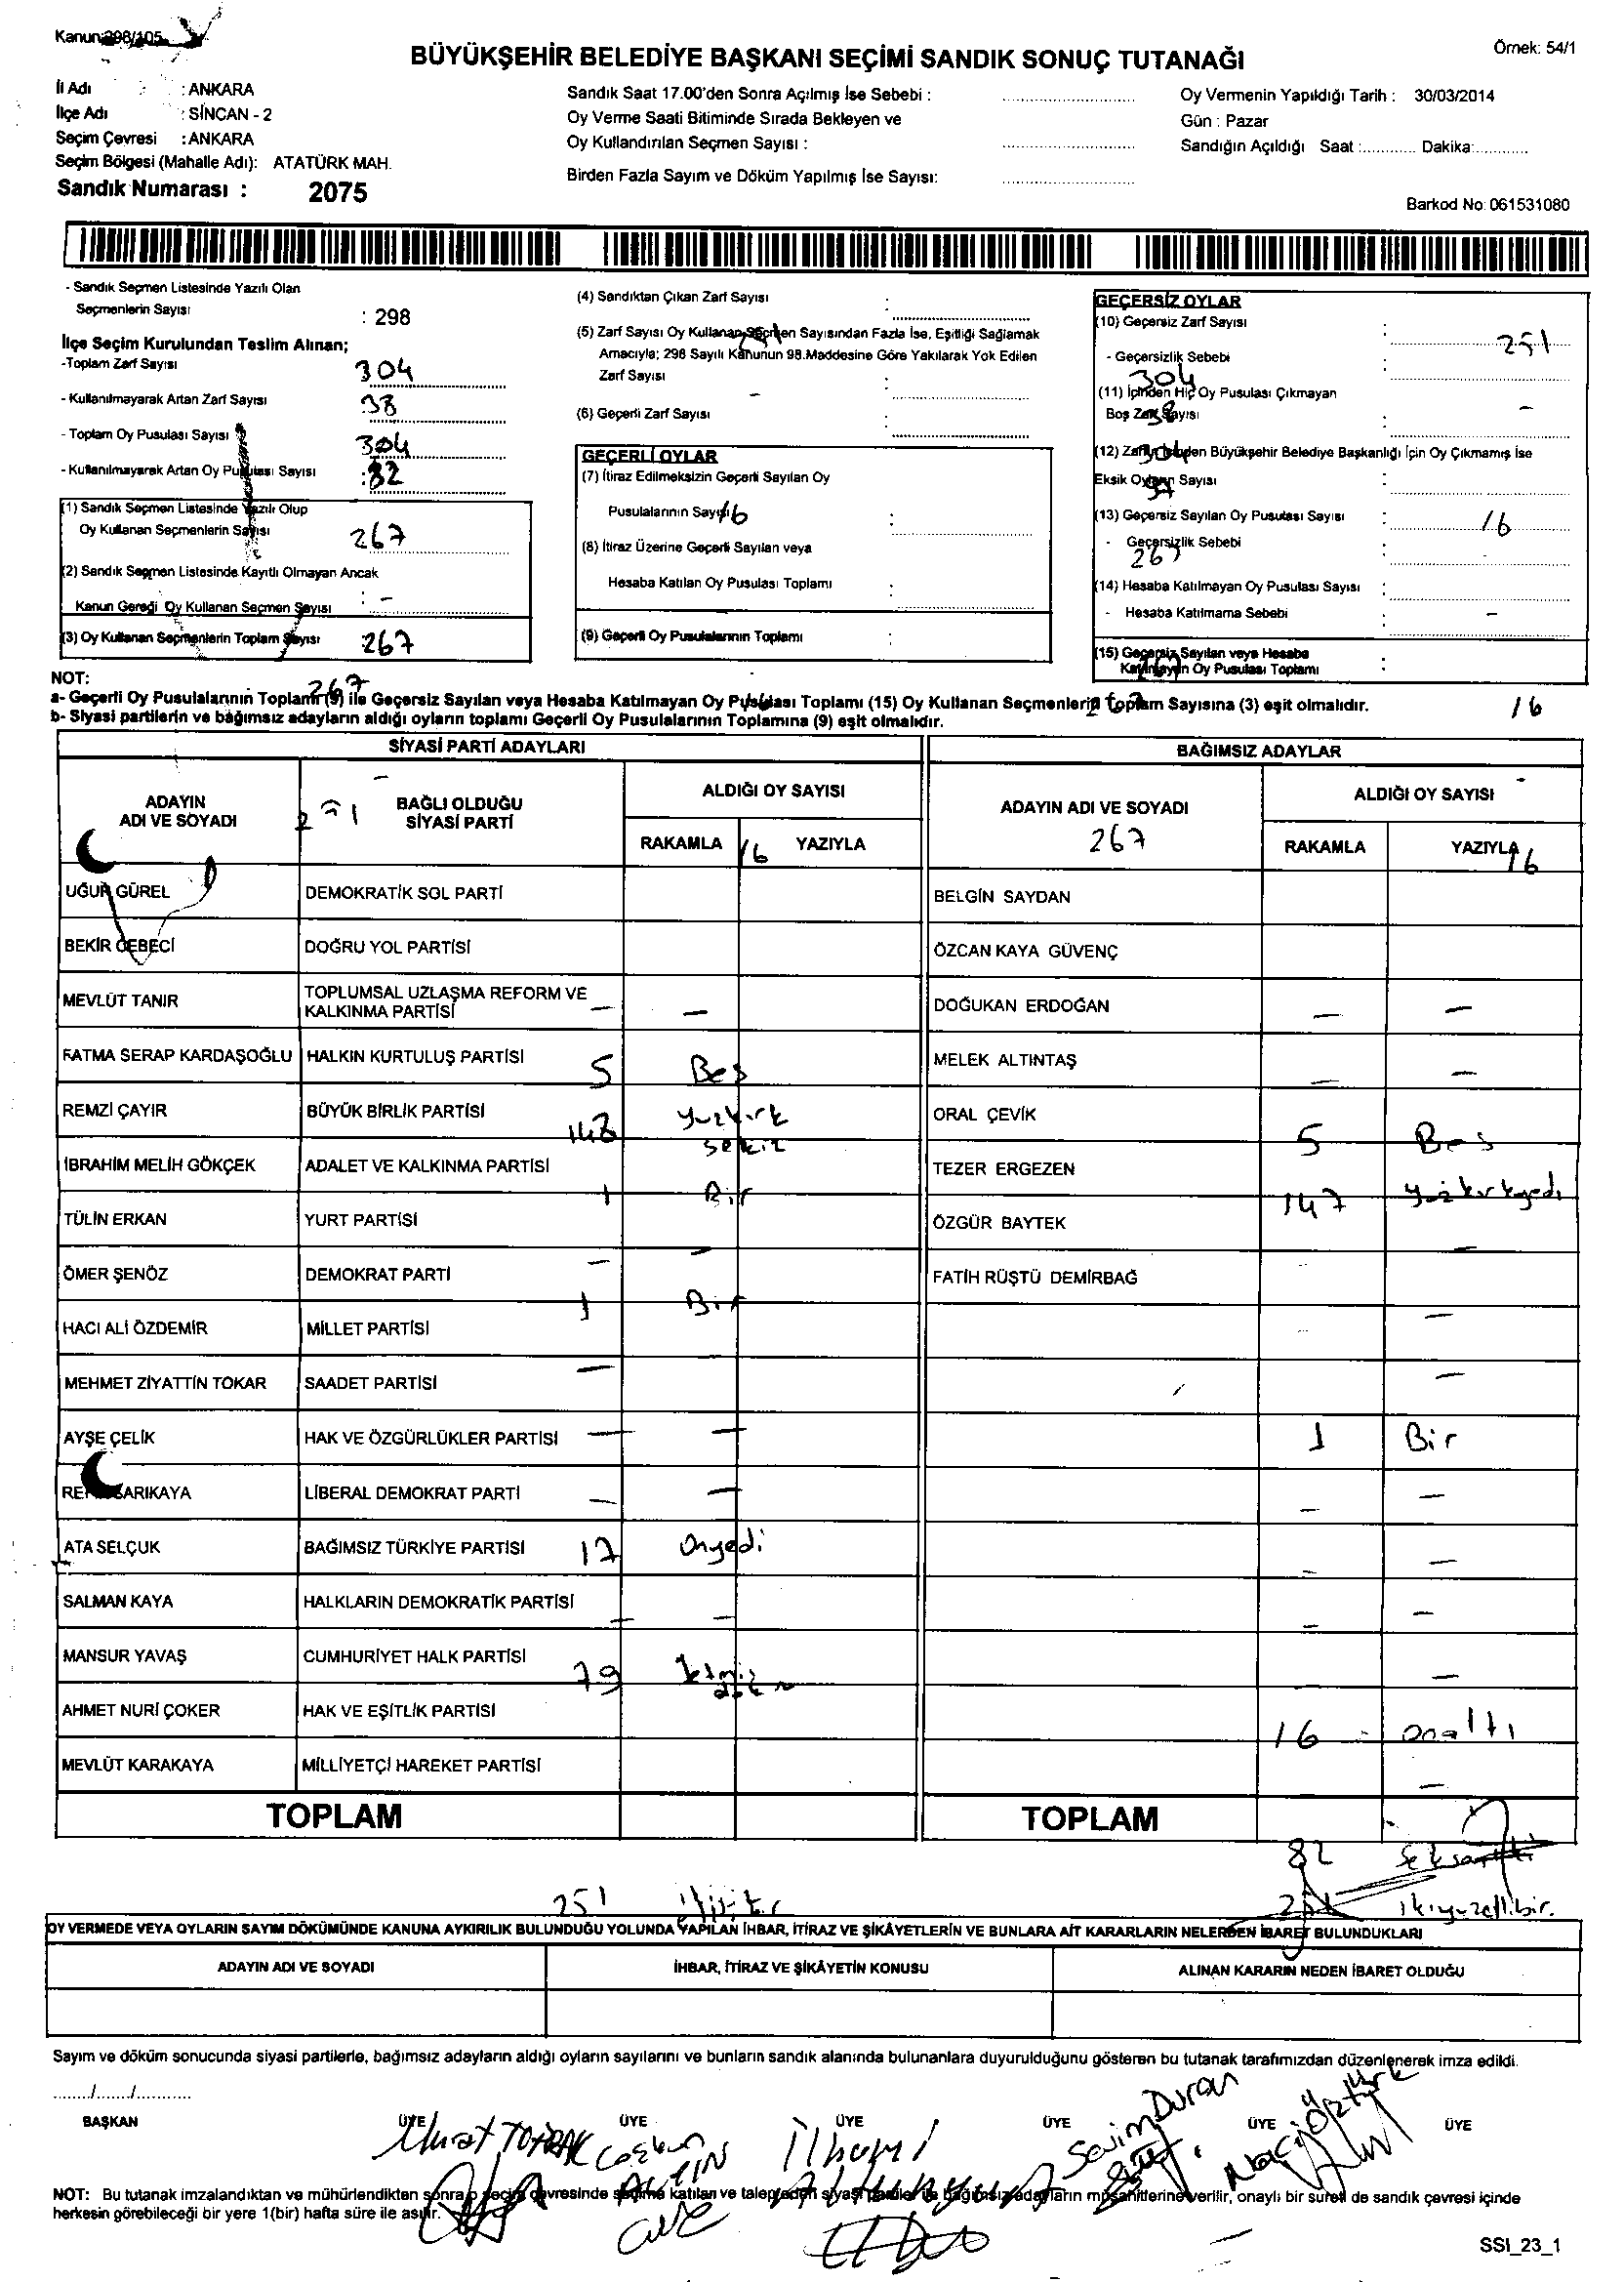 Kanun:298/105
Örnek: 54/1
BÜYÜKŞEHİR BELEDİYE BAŞKANI SEÇİMİ SANDIK SONUÇ TUTANAĞI
İl Adı : ANKARA
İlçe Adı : SİNCAN - 2
Seçim Çevresi : ANKARA
Seçim Bölgesi (Mahalle Adı): ATATÜRK MAH.
Sandık Numarası : 2075
Sandık Saat 17.00'den Sonra Açılmış İse Sebebi :
Oy Verme Saati Bitiminde Sırada Bekleyen ve
Oy Kullandırılan Seçmen Sayısı :
Birden Fazla Sayım ve Döküm Yapılmış İse Sayısı:
Oy Vermenin Yapıldığı Tarih : 30/03/2014
Gün : Pazar
Sandığın Açıldığı Saat :............ Dakika:............
Barkod No: 061531080
- Sandık Seçmen Listesinde Yazılı Olan
Seçmenlerin Sayısı : 298
İlçe Seçim Kurulundan Teslim Alınan;
-Toplam Zarf Sayısı 304
- Kullanılmayarak Artan Zarf Sayısı 38
- Toplam Oy Pusulası Sayısı 304
- Kullanılmayarak Artan Oy Pusulası Sayısı :82
(1) Sandık Seçmen Listesinde Yazılı Olup
Oy Kullanan Seçmenlerin Sayısı 267
(2) Sandık Seçmen Listesinde Kayıtlı Olmayan Ancak
Kanun Gereği Oy Kullanan Seçmen Sayısı : -
(3) Oy Kullanan Seçmenlerin Toplam Sayısı 267
(4) Sandıktan Çıkan Zarf Sayısı :
(5) Zarf Sayısı Oy Kullanan Seçmen Sayısından Fazla İse, Eşitliği Sağlamak
Amacıyla; 298 Sayılı Kanunun 98.Maddesine Göre Yakılarak Yok Edilen
Zarf Sayısı - :
(6) Geçerli Zarf Sayısı :
GEÇERLİ OYLAR
(7) İtiraz Edilmeksizin Geçerli Sayılan Oy
Pusulalarının Sayısı 16
(8) İtiraz Üzerine Geçerli Sayılan veya
Hesaba Katılan Oy Pusulası Toplamı :
(9) Geçerli Oy Pusulalarının Toplamı :
GEÇERSİZ OYLAR
(10) Geçersiz Zarf Sayısı : 251
- Geçersizlik Sebebi
304
(11) İçinden Hiç Oy Pusulası Çıkmayan
Boş Zarf Sayısı : -
38
(12) Zarfın İçinden Büyükşehir Belediye Başkanlığı İçin Oy Çıkmamış İse
304
Eksik Oyların Sayısı :
(13) Geçersiz Sayılan Oy Pusulası Sayısı : 16
- Geçersizlik Sebebi
267
(14) Hesaba Katılmayan Oy Pusulası Sayısı :
- Hesaba Katılmama Sebebi -
(15) Geçersiz Sayılan veya Hesaba
Katılmayan Oy Pusulası Toplamı :
267
NOT:
267
a- Geçerli Oy Pusulalarının Toplamı (9) ile Geçersiz Sayılan veya Hesaba Katılmayan Oy Pusulası Toplamı (15) Oy Kullanan Seçmenlerin Toplam Sayısına (3) eşit olmalıdır. 16
b- Siyasi partilerin ve bağımsız adayların aldığı oyların toplamı Geçerli Oy Pusulalarının Toplamına (9) eşit olmalıdır.
SİYASİ PARTİ ADAYLARI
BAĞIMSIZ ADAYLAR
ADAYIN ADI VE SOYADI
BAĞLI OLDUĞU SİYASİ PARTİ
ALDIĞI OY SAYISI
RAKAMLA 16 YAZIYLA
ADAYIN ADI VE SOYADI
267
ALDIĞI OY SAYISI
RAKAMLA YAZIYLA 16
UĞUR GÜREL DEMOKRATİK SOL PARTİ BELGİN SAYDAN
BEKİR CEBECİ DOĞRU YOL PARTİSİ ÖZCAN KAYA GÜVENÇ
MEVLÜT TANIR TOPLUMSAL UZLAŞMA REFORM VE KALKINMA PARTİSİ — — DOĞUKAN ERDOĞAN — —
FATMA SERAP KARDAŞOĞLU HALKIN KURTULUŞ PARTİSİ 5 Beş MELEK ALTINTAŞ — —
REMZİ ÇAYIR BÜYÜK BİRLİK PARTİSİ 148 yuzkırk sekiz ORAL ÇEVİK 5 Beş
İBRAHİM MELİH GÖKÇEK ADALET VE KALKINMA PARTİSİ 1 Bir TEZER ERGEZEN 147 yüzkırkyedi
TÜLİN ERKAN YURT PARTİSİ — ÖZGÜR BAYTEK —
ÖMER ŞENÖZ DEMOKRAT PARTİ — FATİH RÜŞTÜ DEMİRBAĞ
1 Bir —
HACI ALİ ÖZDEMİR MİLLET PARTİSİ
MEHMET ZİYATTİN TOKAR SAADET PARTİSİ — —
AYŞE ÇELİK HAK VE ÖZGÜRLÜKLER PARTİSİ — — 1 Bir
SARIKAYA LİBERAL DEMOKRAT PARTİ — — — —
ATA SELÇUK BAĞIMSIZ TÜRKİYE PARTİSİ 17 Onyedi — —
SALMAN KAYA HALKLARIN DEMOKRATİK PARTİSİ — — — —
MANSUR YAVAŞ CUMHURİYET HALK PARTİSİ 79 —
AHMET NURİ ÇOKER HAK VE EŞİTLİK PARTİSİ 16 onaltı
MEVLÜT KARAKAYA MİLLİYETÇİ HAREKET PARTİSİ —
TOPLAM TOPLAM
82 Seksaniki
251 251 ikiyüzellibir.
OY VERMEDE VEYA OYLARIN SAYIM DÖKÜMÜNDE KANUNA AYKIRILIK BULUNDUĞU YOLUNDA YAPILAN İHBAR, İTİRAZ VE ŞİKÂYETLERİN VE BUNLARA AİT KARARLARIN NELERDEN İBARET BULUNDUKLARI
ADAYIN ADI VE SOYADI İHBAR, İTİRAZ VE ŞİKÂYETİN KONUSU ALINAN KARARIN NEDEN İBARET OLDUĞU
Sayım ve döküm sonucunda siyasi partilerle, bağımsız adayların aldığı oyların sayılarını ve bunların sandık alanında bulunanlara duyurulduğunu gösteren bu tutanak tarafımızdan düzenlenerek imza edildi.
......./......./...........
BAŞKAN ÜYE ÜYE ÜYE ÜYE ÜYE ÜYE
Murat TOPRAK Coşkun İlhami Sevim Duran Naci ÖZTÜRK
NOT: Bu tutanak imzalandıktan ve mühürlendikten sonra o seçim çevresinde seçime katılan ve talep eden siyasi partiler ile bağımsız adayların müşahitlerine verilir, onaylı bir sureti de sandık çevresi içinde
herkesin görebileceği bir yere 1(bir) hafta süre ile asılır.
SSI_23_1